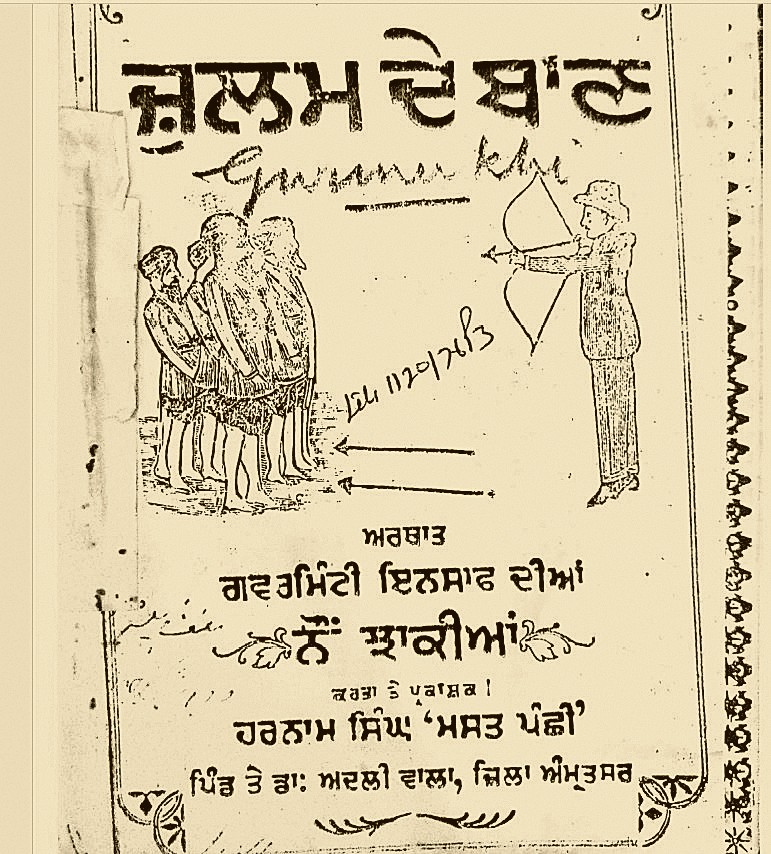 ਜ਼ੁਲਮ ਦੇ ਬਾਣ
Gurmukhi
ਅਰਥਾਤ
ਗਵਰਮਿੰਟੀ ਇਨਸਾਫ ਦੀਆਂ
ਨੌਂ ਝਾਕੀਆਂ
ਕਰਤਾ ਤੇ ਪ੍ਰਕਾਸ਼ਕ।
ਹਰਨਾਮ ਸਿੰਘ ‘ਮਸਤ ਪੰਛੀ’
ਪਿੰਡ ਤੇ ਡਾ: ਅਦਲੀ ਵਾਲਾ, ਜ਼ਿਲਾ ਅੰਮ੍ਰਤਸਰ